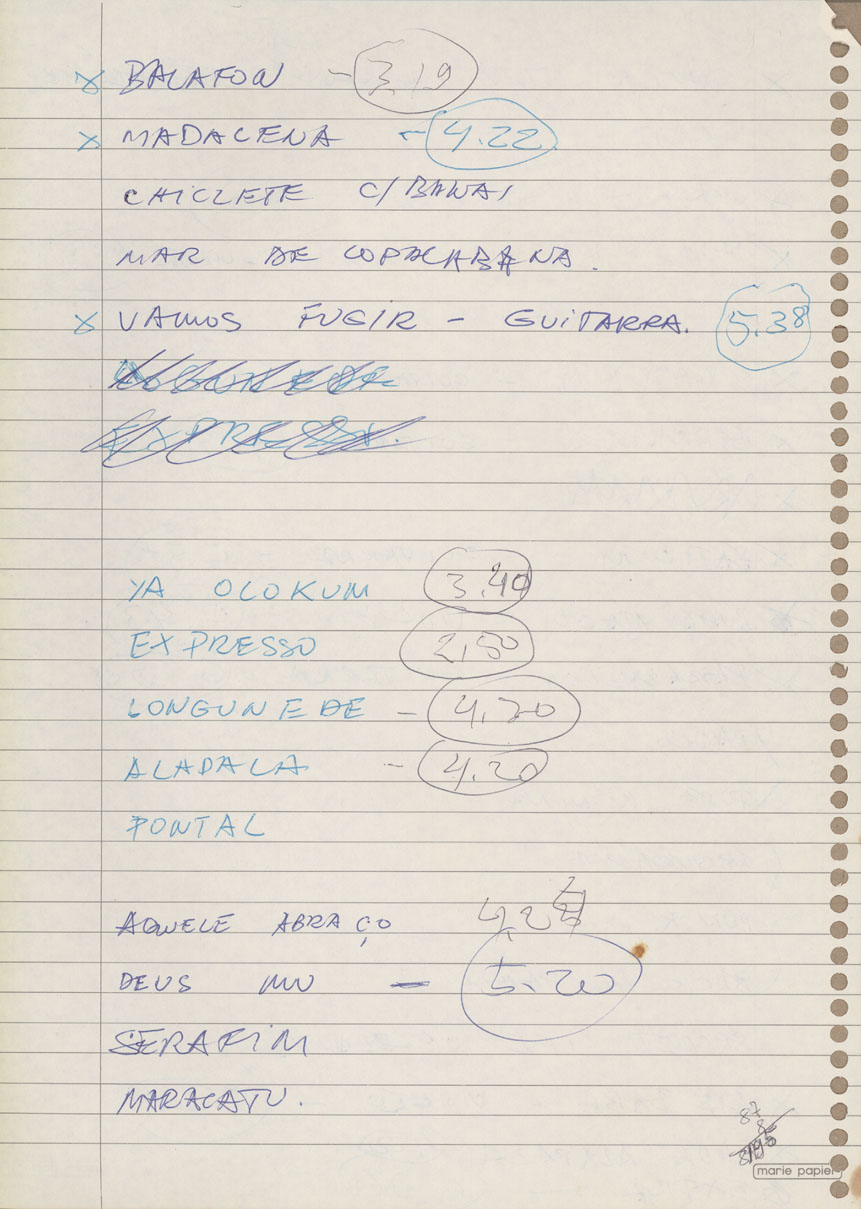 x BALAFON - 3.19
x MADALENA - 4.22
CHICLETE C/ BANAI
MAR DE COPACABANA.
x VAMOS FUGIR - GUITARRA. 5.38
EXPRESSO.
YA OLOKUM 3.40
EXPRESSO 2.50
LONGUNEDE - 4.20
ALAPALA - 4.20
PONTAL
AQUELE ABRAÇO 4.2
DEUS MU - 5.20
SERAFIM
MARACATU.
87
marie papier